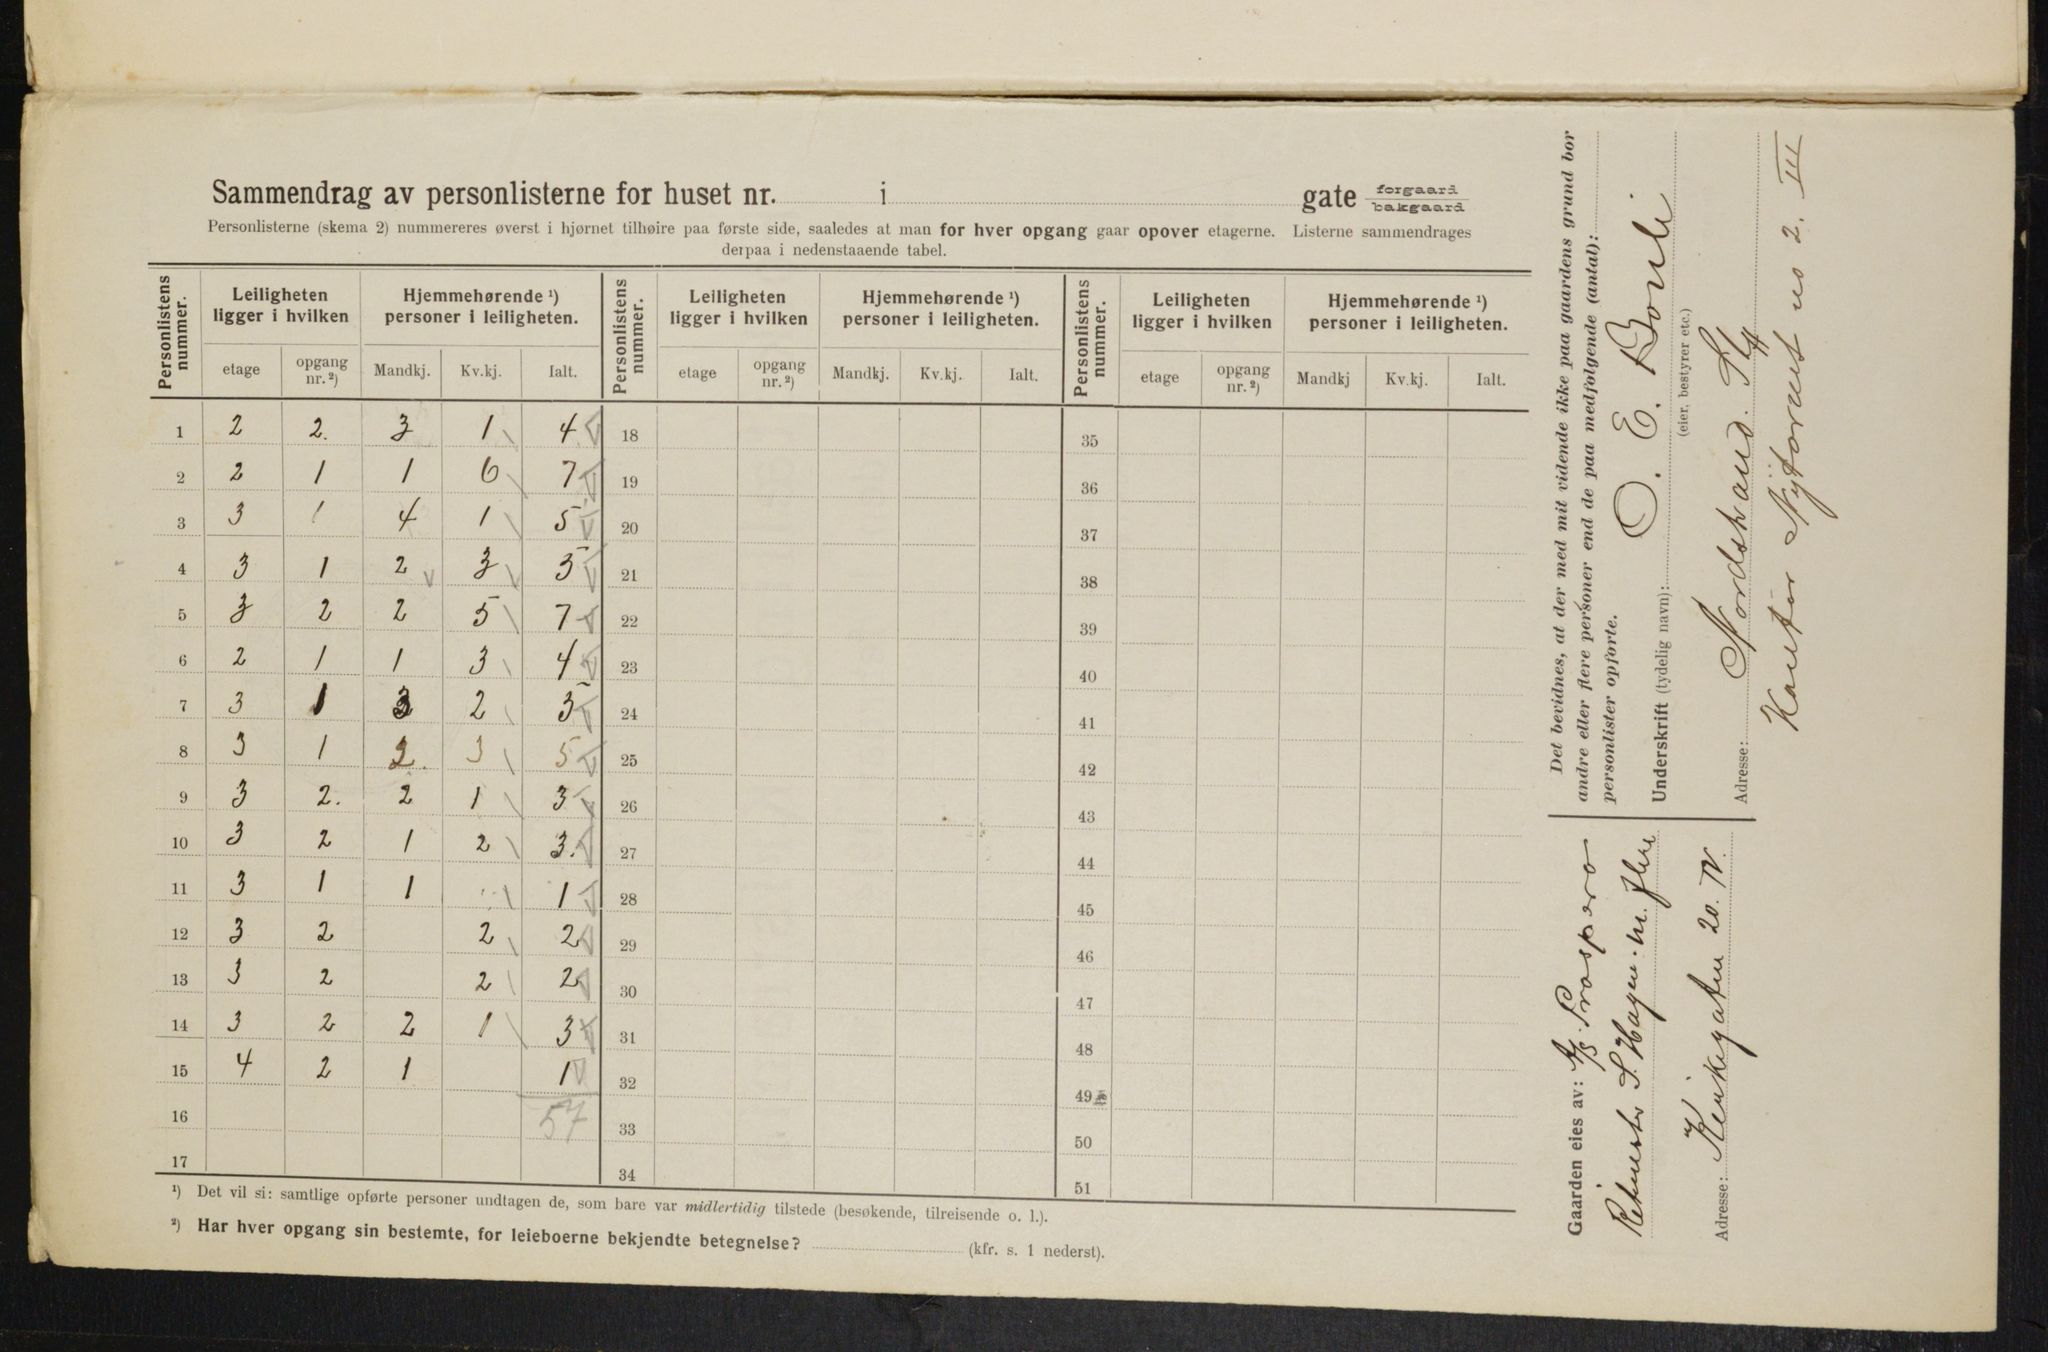 Sammendrag av personlisterne for huset nr. i gate forgaard bakgaard
Personlisterne (skema 2) nummereres øverst i hjørnet tilhøire paa første side, saaledes at man for hver opgang gaar opover etagerne. Listerne sammendrages
derpaa i nedenstaaende tabel.
Personlistens nummer. Leiligheten ligger i hvilken Hjemmehørende ¹) personer i leiligheten. Personlistens nummer. Leiligheten ligger i hvilken Hjemmehørende ¹) personer i leiligheten. Personlistens nummer. Leiligheten ligger i hvilken Hjemmehørende ¹) personer i leiligheten.
etage opgang nr. ²) Mandkj. Kv.kj. Ialt. etage opgang nr. ²) Mandkj. Kv.kj. Ialt. etage opgang nr. ²) Mandkj Kv.kj. Ialt.
1 2 2. 3 1 4 18 35
2 2 1 1 6 7 19 36
3 3 1 4 1 5 20 37
4 3 1 2 3 5 21 38
5 3 2 2 5 7 22 39
6 2 1 1 3 4 23 40
7 3 1 3 2 5 24 41
8 3 1 2. 3 5 25 42
9 3 2. 2 1 3 26 43
10 3 2 1 2 3. 27 44
11 3 1 1 1 28 45
12 3 2 2 2 29 46
13 3 2 2 2 30 47
14 3 2 2 1 3 31 48
15 4 2 1 1 32 49
16 57 33 50
17 34 51
¹) Det vil si: samtlige opførte personer undtagen de, som bare var midlertidig tilstede (besøkende, tilreisende o. l.).
²) Har hver opgang sin bestemte, for leieboerne bekjendte betegnelse? (kfr. s. 1 nederst).
Det bevidnes, at der med mit vidende ikke paa gaardens grund bor
andre eller flere personer end de paa medfølgende (antal):
personlister opførte.
Underskrift (tydelig navn): O. E. Bouli
(eier, bestyrer etc.)
Adresse: Nordstrand. St
Kontor Nytorvet no 2. III
Gaarden eies av: A/S Prospero
S. Hagen m. flere
Adresse: Kirkegaten 20. IV.